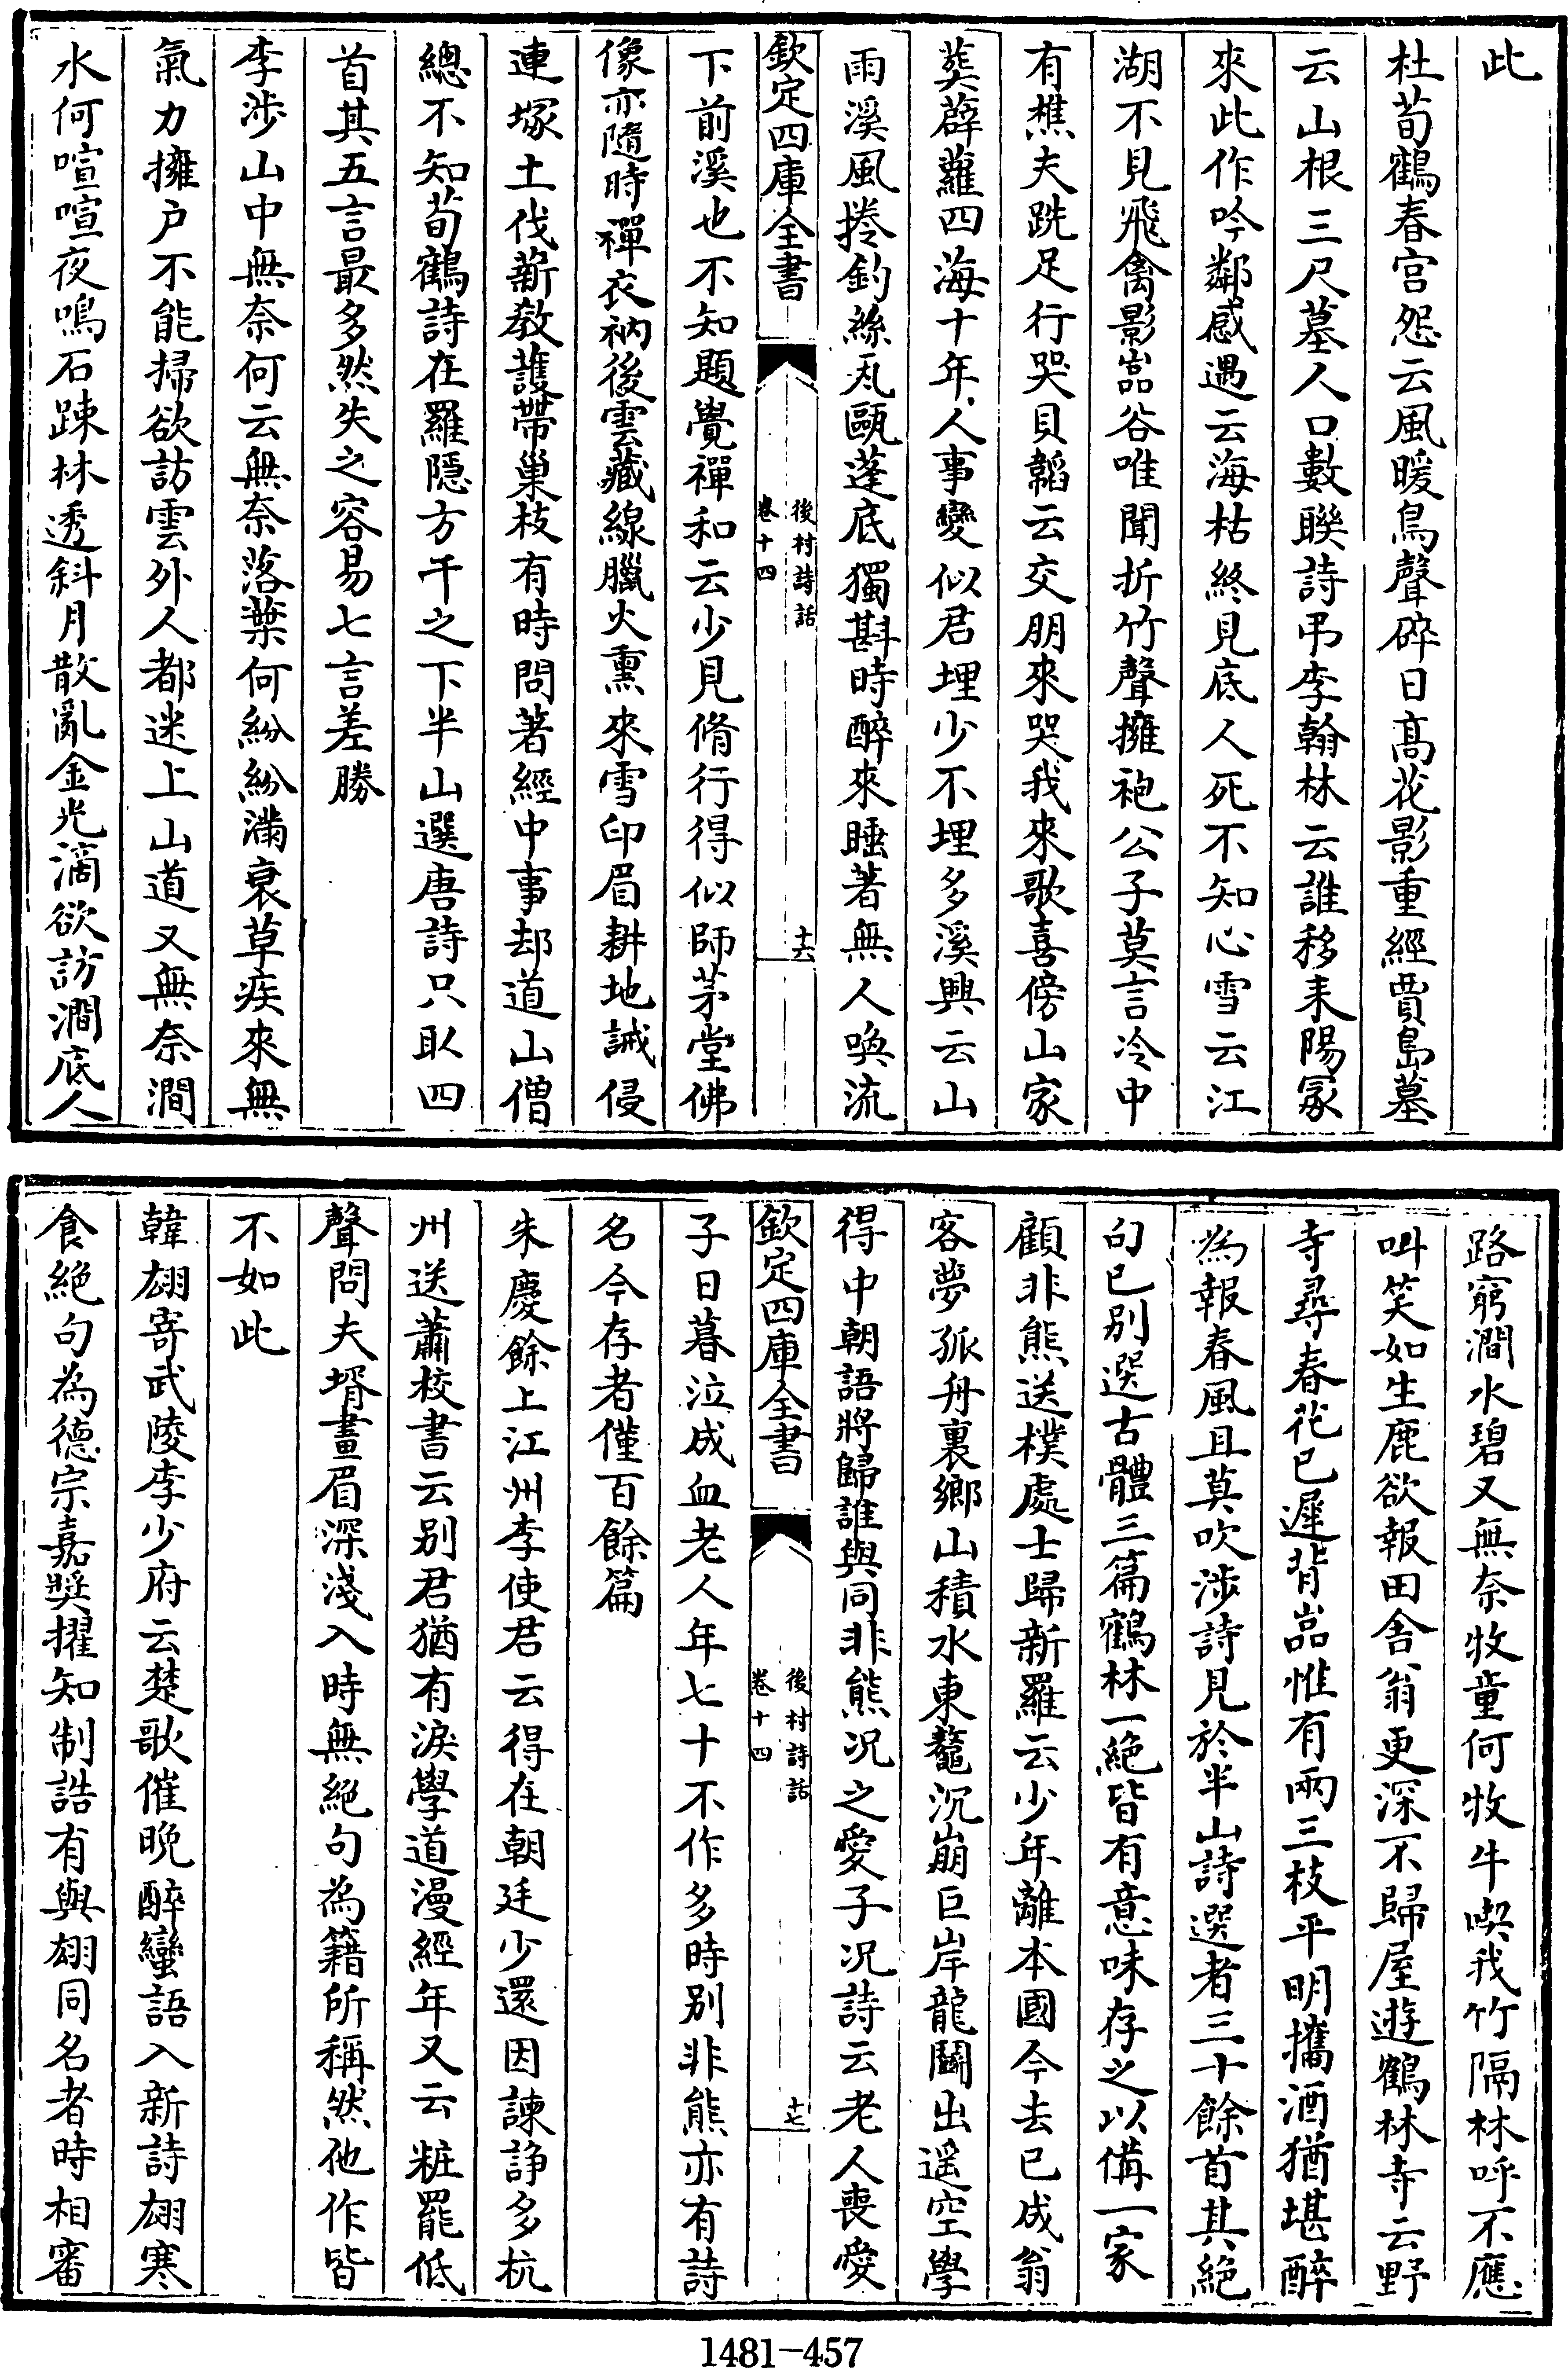 此
杜荀鶴春宫怨云風暖鳥聲碎日髙花影重經賈島墓
云山根三尺墓人口數聯詩弔李翰林云誰移耒陽冢
來此作吟鄰感遇云海枯終見底人死不知心雪云江
湖不見飛禽影嵓谷唯聞折竹聲擁袍公子莫言冷中
有樵夫跣足行哭貝韜云交朋來哭我來歌喜傍山家
葬薜蘿四海十年人事變似君埋少不埋多溪興云山
雨溪風捲釣絲瓦甌蓬底獨斟時醉來睡著無人喚流
欽定四庫全書
後村詩話
卷十四
十六
下前溪也不知題覺禪和云少見脩行得似師茅堂佛
像亦隨時禪衣衲後雲藏線臘火熏來雪印眉耕地誡侵
連塚土伐薪教護帶巢枝有時問著經中事却道山僧
總不知荀鶴詩在羅隱方干之下半山選唐詩只取四
首其五言最多然失之容易七言差勝
李涉山中無奈何云無奈落葉何紛紛滿衰草疾來無
氣力擁户不能掃欲訪雲外人都迷上山道又無奈澗
水何喧喧夜鳴石踈林透斜月散亂金光滴欲訪澗底人
路窮澗水碧又無奈牧童何牧牛喫我竹隔林呼不應
叫笑如生鹿欲報田舍翁更深不歸屋遊鶴林寺云野
寺尋春花已遲背嵓惟有兩三枝平明攜酒猶堪醉
為報春風且莫吹涉詩見於半山詩選者三十餘首其絕
句已别選古體三篇鶴林一絕皆有意味存之以備一家
顧非熊送樸處士歸新羅云少年離本國今去已成翁
客夢孤舟裏鄉山積水東鼇沉崩巨岸龍鬭出遥空學
得中朝語將歸誰與同非熊况之愛子况詩云老人喪愛
欽定四庫全書
後村詩話
卷十四
十七
子日暮泣成血老人年七十不作多時别非熊亦有詩
名今存者僅百餘篇
朱慶餘上江州李使君云得在朝廷少還因諫諍多杭
州送蕭校書云别君猶有淚學道漫經年又云粧罷低
聲問夫壻畫眉深淺入時無絕句為籍所稱然他作皆
不如此
韓翃寄武陵李少府云楚歌催晚醉蠻語入新詩翃寒
食絕句為德宗嘉奬擢知制誥有與翃同名者時相審
1481-457